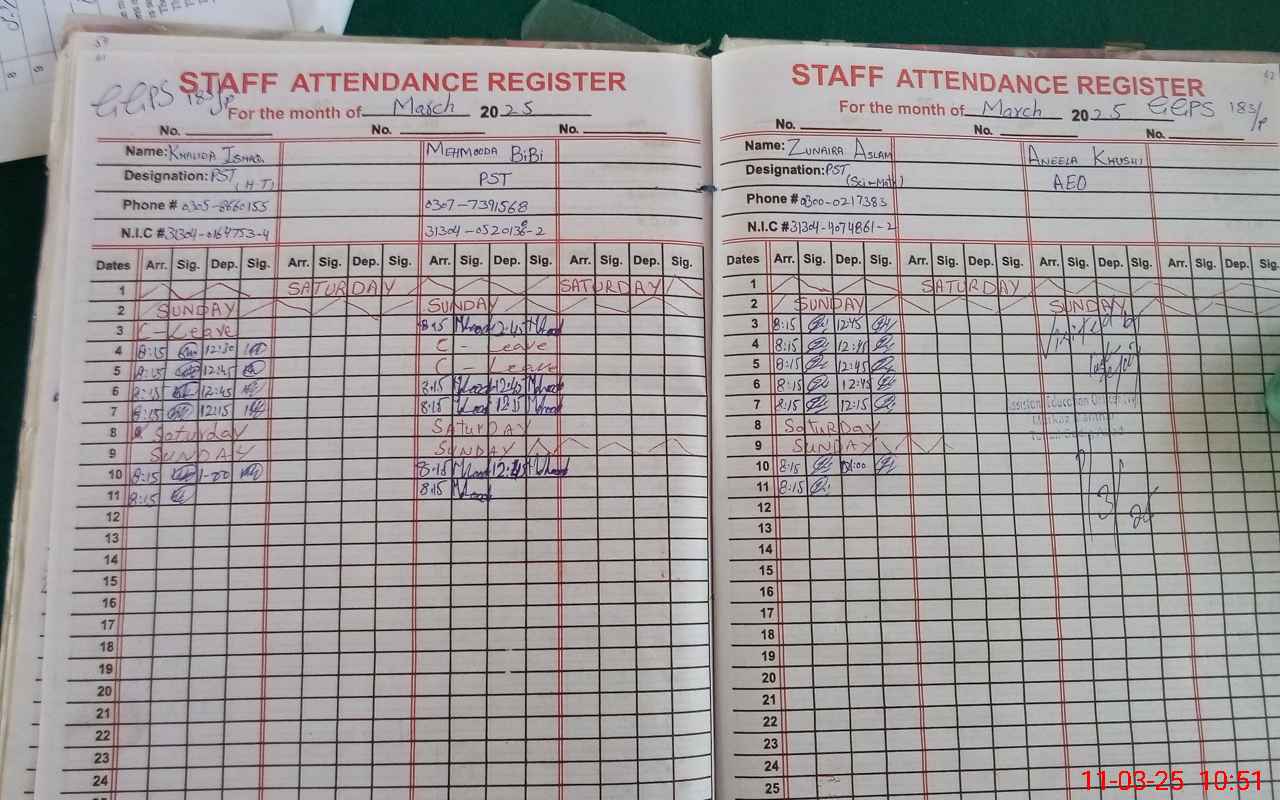 STAFF ATTENDANCE REGISTER
GGPS 183/P
For the month of March 2025
No. No. No.
Name: KHALIDA ISHAQ MEHMOODA BiBi
Designation: PST (H T) PST
Phone # 0305-8660155 0307-7391568
N.I.C # 31304-0164753-4 31304-0520136-2
Dates Arr. Sig. Dep. Sig. Arr. Sig. Dep. Sig. Arr. Sig. Dep. Sig. Arr. Sig. Dep. Sig.
1 SATURDAY SATURDAY
2 SUNDAY SUNDAY
3 C-Leave 8:15 12:45
4 8:15 12:30 C - Leave
5 8:15 12:45 C - Leave
6 8:15 12:45 8:15 12:45
7 8:15 12:15 8:15 12:15
8 Saturday SATURDAY
9 SUNDAY SUNDAY
10 8:15 1-00 8:15 12:45
11 8:15 8:15
12
13
14
15
16
17
18
19
20
21
22
23
24
STAFF ATTENDANCE REGISTER
For the month of March 2025 GGPS 183/P
No. No. No.
Name: ZUNAIRA ASLAM ANEELA KHUSHI
Designation: PST (Sci-Math) AEO
Phone # 0300-0217383
N.I.C # 31304-4074861-2
Dates Arr. Sig. Dep. Sig. Arr. Sig. Dep. Sig. Arr. Sig. Dep. Sig. Arr. Sig. Dep.
1 SATURDAY
2 SUNDAY SUNDAY
3 8:15 12:45 Visited by
4 8:15 12:45
5 8:15 12:45
6 8:15 12:45
7 8:15 12:15
8 SATURDAY
9 SUNDAY
10 8:15 01:00
11 8:15
12
13
14
15
16
17
18
19
20
21
22
23
24
25
11-03-25 10:51